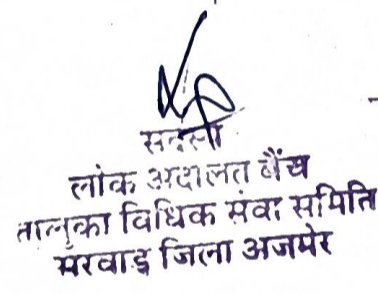 सदस्य
लोक अदालत बैंच
तालुका विधिक सेवा समिति
सरवाड़ जिला अजमेर